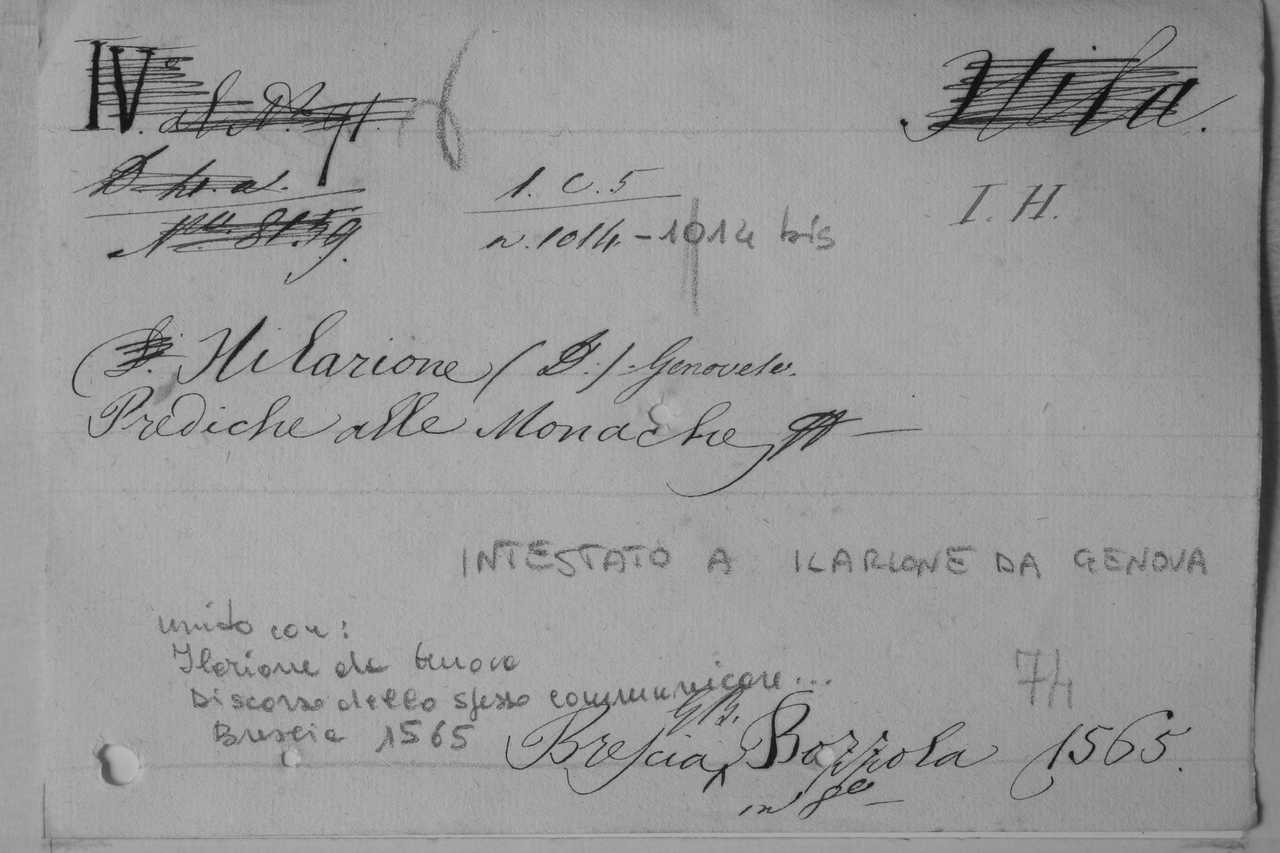 IV.º al N.º 91.
Hila.
1. C. 5
I. H.
n. 1014. - 1014 bis
Hilarione (D.) Genovese.
Prediche alle Monache
INTESTATO A ILARIONE DA GENOVA
unito con:
Ilarione da Genova
Discorso dello spesso communicare...
74
Brescia 1565
Brescia, G.B. Bozzola 1565.
in 8º